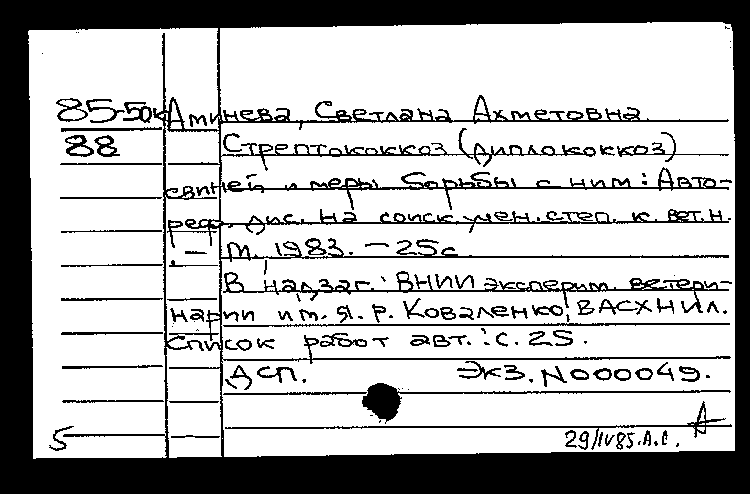 85-50к Аминева, Светлана Ахметовна
88 Стрептококкоз (диплококкоз)
свиней и меры борьбы с ним: Авто-
реф. дис. на соиск. учен. степ. к. вет. н.
. — М., 1983. — 25с.
В надзаг.: ВНИИ эксперим. ветери-
нарии им. Я. Р. Коваленко, ВАСХНИЛ.
Список работ авт.: с. 25.
ДСП. Экз. N000049.
5 29/IV85.А.С. А